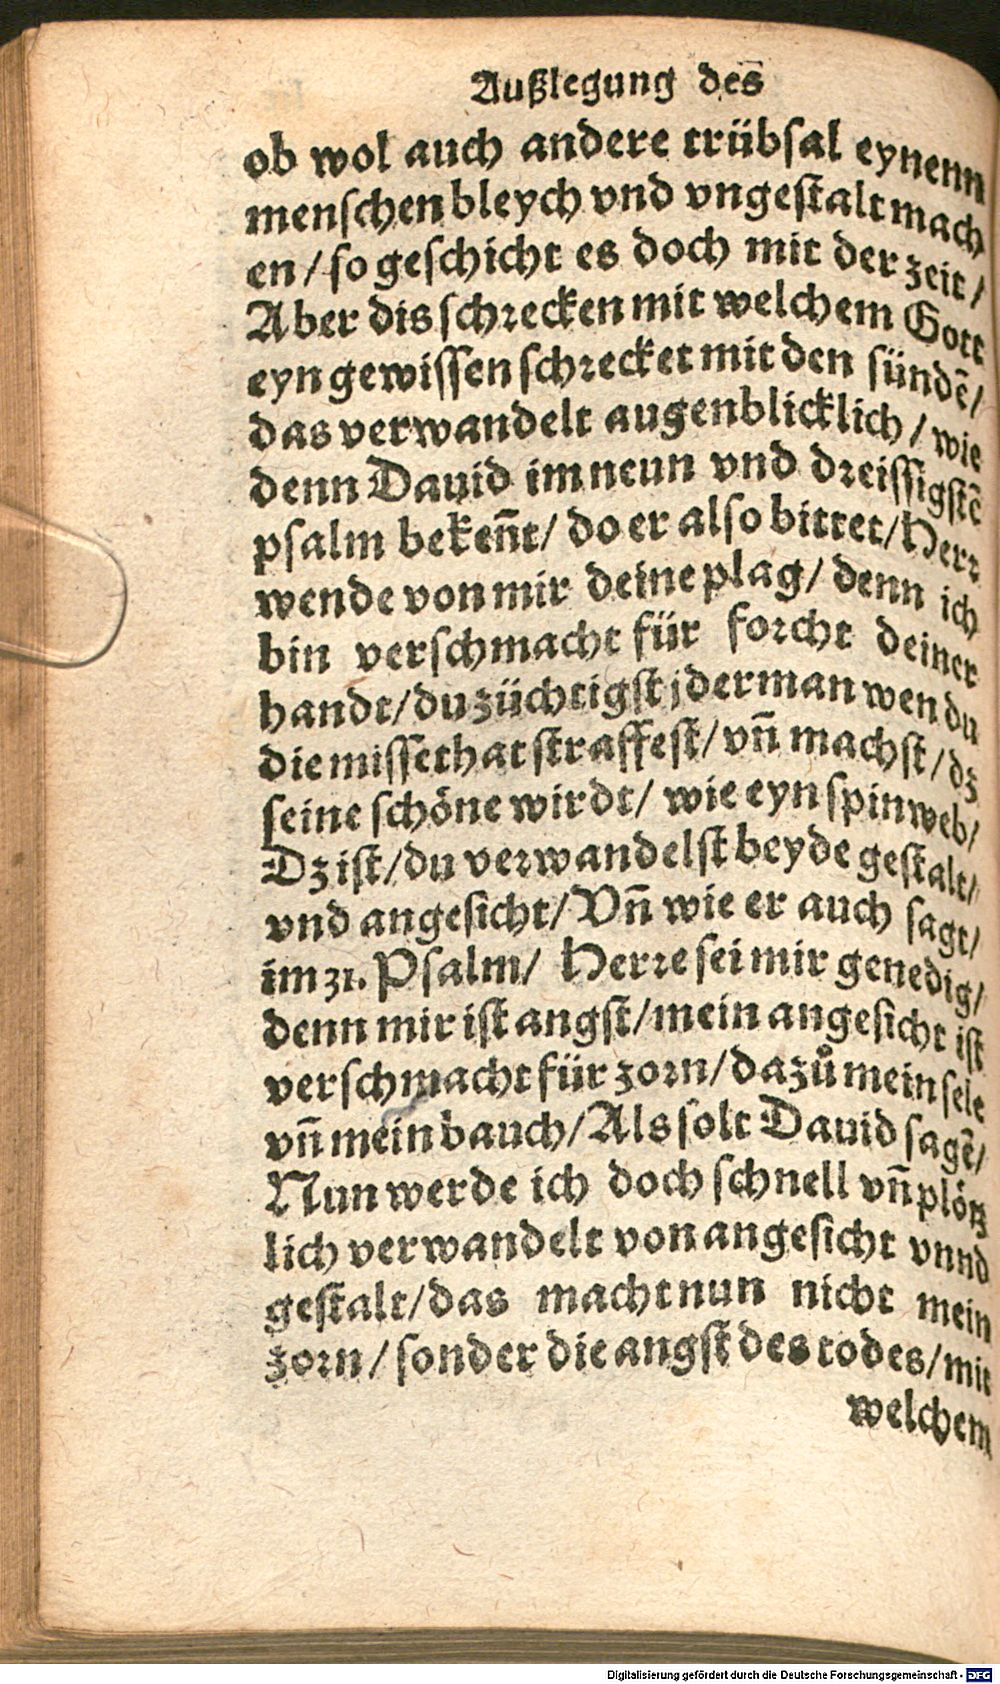 Außlegung des̄
ob wol auch andere trübsal eynenn
menschen bleych vnd vngestalt mach
en / so geschicht es doch mit der zeit /
Aber dis schrecken mit welchem Gott
eyn gewissen schrecket mit den sündē /
das verwandelt augenblicklich / wie
denn Dauid im neun vnd dreissigstē
psalm bekeñt / do er also bittet / Herr
wende von mir deine plag / denn ich
bin verschmacht für forcht deiner
handt / du züchtigst jderman wen du
die missethat straffest / vñ machst / dz
seine schöne wirdt / wie eyn spinweb /
Dz ist / du verwandelst beyde gestalt /
vnd angesicht / Vñ wie er auch sagt /
im 31. Psalm / Herre sei mir genedig /
denn mir ist angst / mein angesicht ist
verschmacht für zorn / dazů mein sele
vñ mein bauch / Als solt Dauid sagē /
Nun werde ich doch schnell vñ plötz
lich verwandelt von angesicht vnnd
gestalt / das macht nun nicht mein
zorn / sonder die angst des todes / mit
welchem
Digitalisierung gefördert durch die Deutsche Forschungsgemeinschaft - DFG